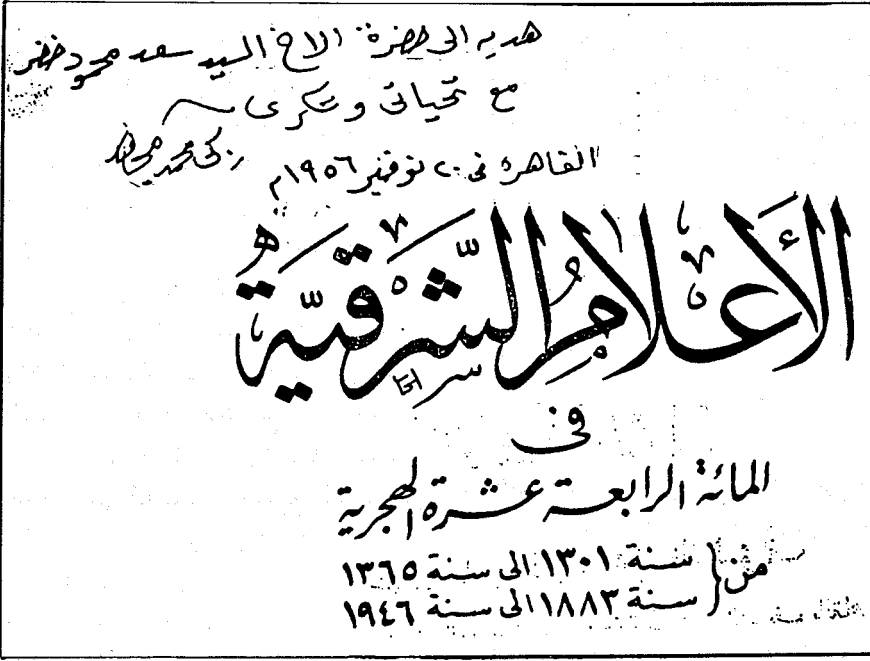 هديه الى حضرة الاخ السيد سعد محمود خضر
مع تحياتى وشكرى
زكى محمد مجاهد
القاهرة فى ٢٠ نوفمبر ١٩٥٦م
الأَعْلَامُ الشَّرْقِيَّةُ
فى
المائة الرابعة عشرة الهجرية
من { سنة ١٣٠١ الى سنة ١٣٦٥
سنة ١٨٨٣ الى سنة ١٩٤٦